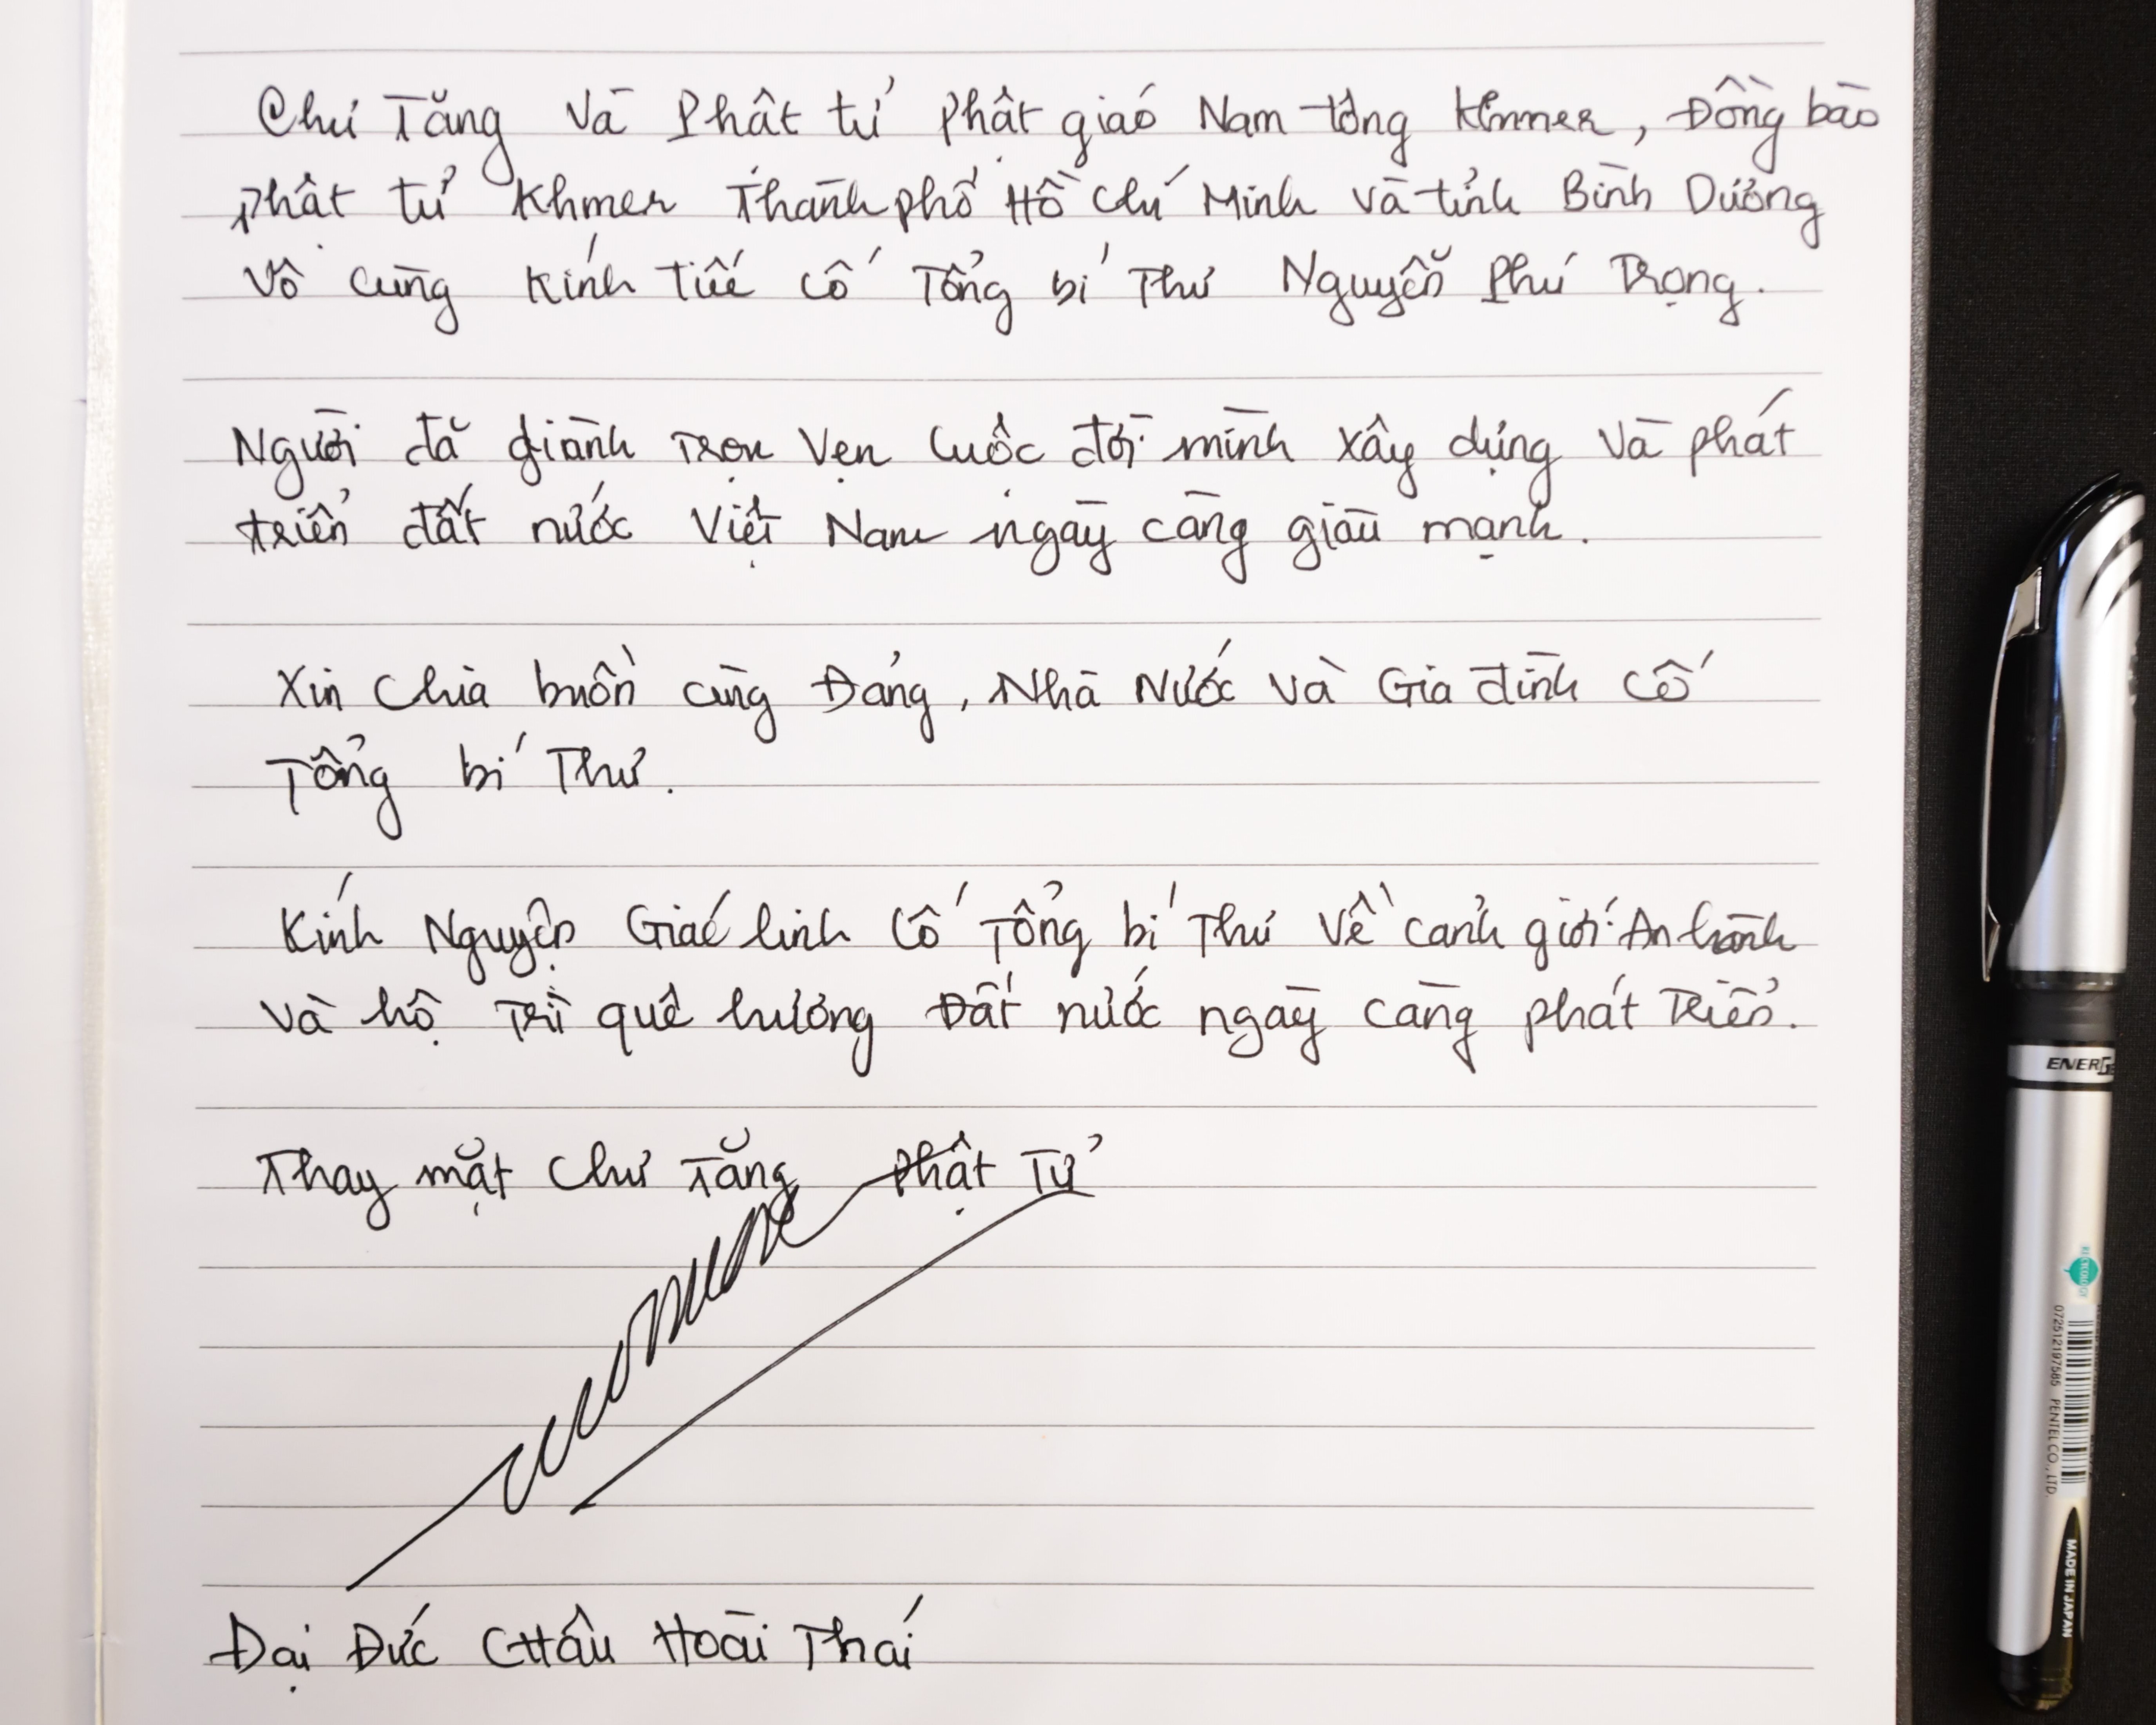 Chư Tăng và Phật tử Phật giáo Nam tông Khmer, Đồng bào
Phật tử Khmer Thành phố Hồ Chí Minh và tỉnh Bình Dương
Vô cùng Kính Tiếc Cố Tổng bí Thư Nguyễn Phú Trọng.
Người đã giành Trọn Vẹn Cuộc đời mình xây dựng và phát
triển đất nước Việt Nam ngày càng giàu mạnh.
Xin Chia buồn cùng Đảng, Nhà Nước và Gia đình Cố
Tổng bí Thư.
Kính Nguyện Giác linh Cố Tổng bí Thư Về cảnh giới An lành
và hộ Trì quê hương Đất nước ngày càng phát Triển.
Thay mặt Chư Tăng Phật Tử
Đại Đức CHÂU Hoài Thái
ENERGE
RECYCOLOGY
072512197585 PENTEL CO., LTD.
MADE IN JAPAN